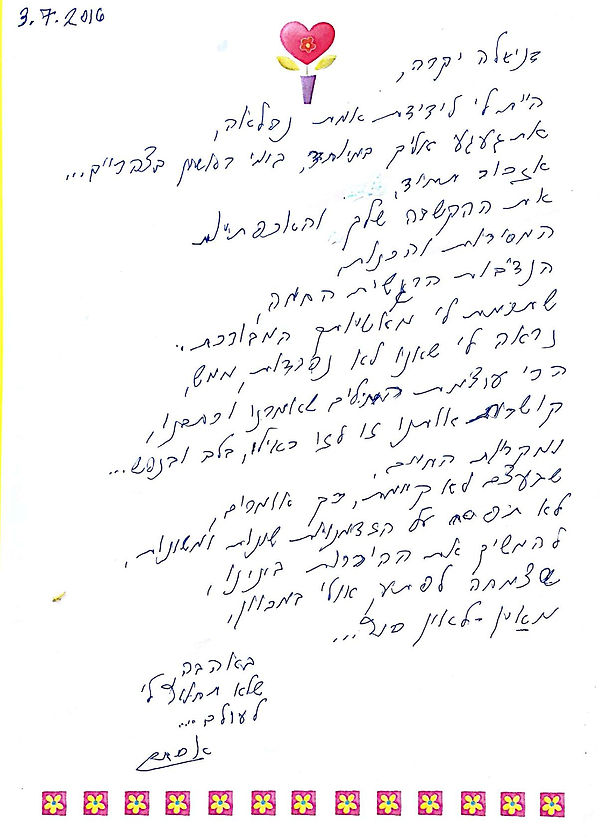 3.7.2016
דניאלה יקרה,
היית לי לידידת אמת נפלאה,
אתגעגע אליך במיוחד, בימי ראשון בצהריים...
אזכור תמיד,
את ההקשבה שלך והאכפתיות
המסירות והכנות
הנדיבות הרגשית החמה,
שתרמת לי מאישיותך המבורכת..
נראה לי שאנו לא נפרדות, ממש,
הרי עוצמת המילים שאמרנו וכתבנו,
קושרות אותנו זו לזו כאילו, בלב ובנפש...
ומקריות החיים,
שבעצם לא קיימת, כך אומרים,
לא תפסח על הזדמנויות שונות ומשונות,
להמשיך את ההיכרות בינינו,
שצמחה לפתע, אולי במכוון,
מאין-לאין סוף...
באהבה
שלא תחלוף לי
לעולם...